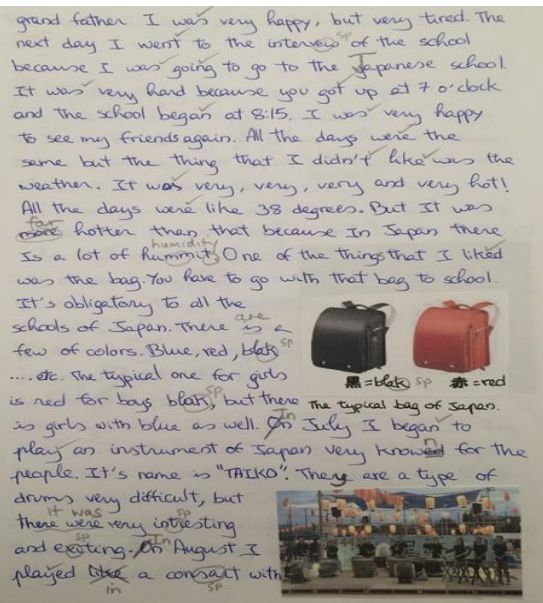 grand father I was very happy, but very tired. The
next day I went to the intervew sp of the school
because I was going to go to the Japanese school.
It was very hard because you got up at 7 o'clock
and the school began at 8:15. I was very happy
to see my friends again. All the days were the
same but the thing that I didn't like was the
weather. It was very, very, very and very hot!
All the days were like 38 degrees. But It was
far
more hotter than that because In Japan there
humidity
Is a lot of hummity One of the things that I liked
was the bag. You have to go with that bag to school.
It's obligatory to all the
are
schools of Japan. There is a
few of colors. Blue, red, blak sp
.... etc. The typical one for girls
黒=blak sp 赤=red
is red for boys blak, sp but there
The typical bag of Japan.
is girls with blue as well. On In July I began to
play an instrument of Japan very knowed n for the
people. It's name is "TAIKO". They are a type of
drums very difficult, but
it was sp
there were very intresting
sp In
and exciting. On August I
played like a consact with
in sp